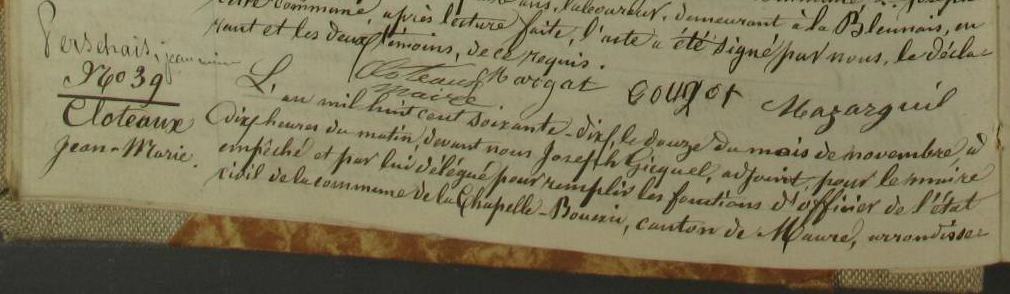 cette commune, après lecture faite, ans, laboureur, demeurant à la Blennais, en
rant et les deux témoins, de ce requis. l'acte a été signé par nous, le décla-
Perschais, jean
Cloteaux Marigat Gougot Mazarguil
maire
No 39
Cloteaux
Jean-Marie.
L'an mil huit cent soixante-dix, le douze du mois de novembre, à
dix heures du matin, devant nous Joseph Gicquel, adjoint, pour le maire
empêché et par lui délégué pour remplir les fonctions d'officier de l'état
civil de la commune de la Chapelle-Bouexic, canton de Maure, arrondisse-